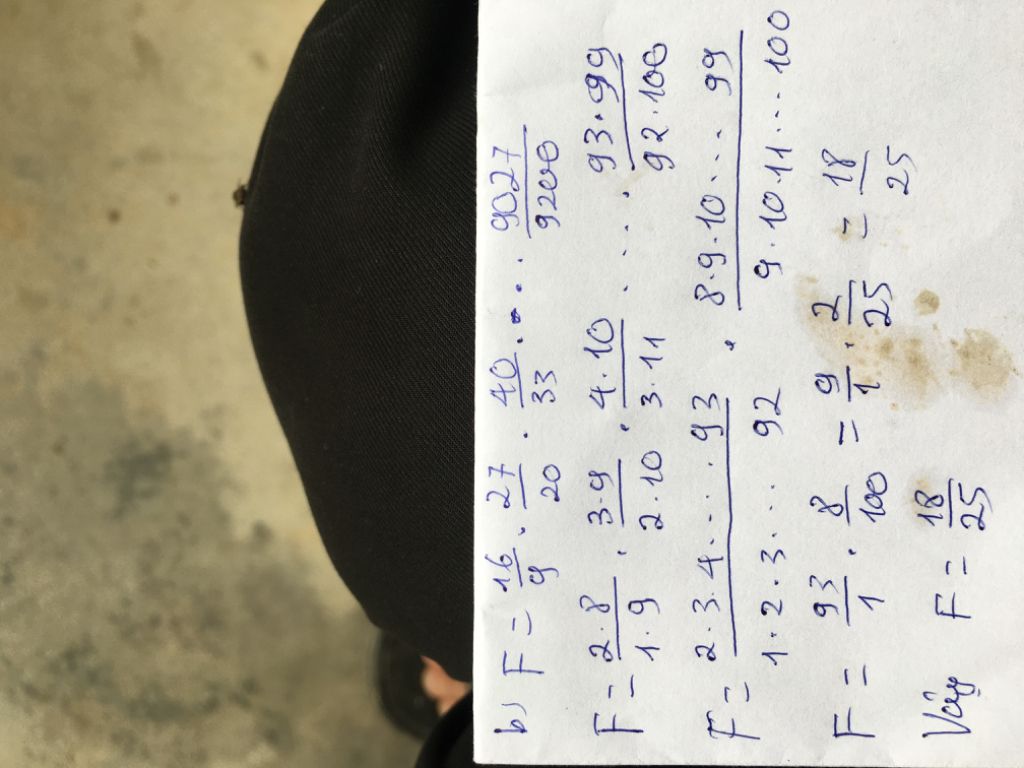 b) F = 16/9 . 27/20 . 40/33 . . . . 9027/9200
F = (2.8)/(1.9) . (3.9)/(2.10) . (4.10)/(3.11) . . . . (93.99)/(92.100)
F = (2.3.4. . . . .93)/(1.2.3. . . 92) . (8.9.10. . . 99)/(9.10.11. . . 100)
F = 93/1 . 8/100 = 9/1 . 2/25 = 18/25
Vậy F = 18/25